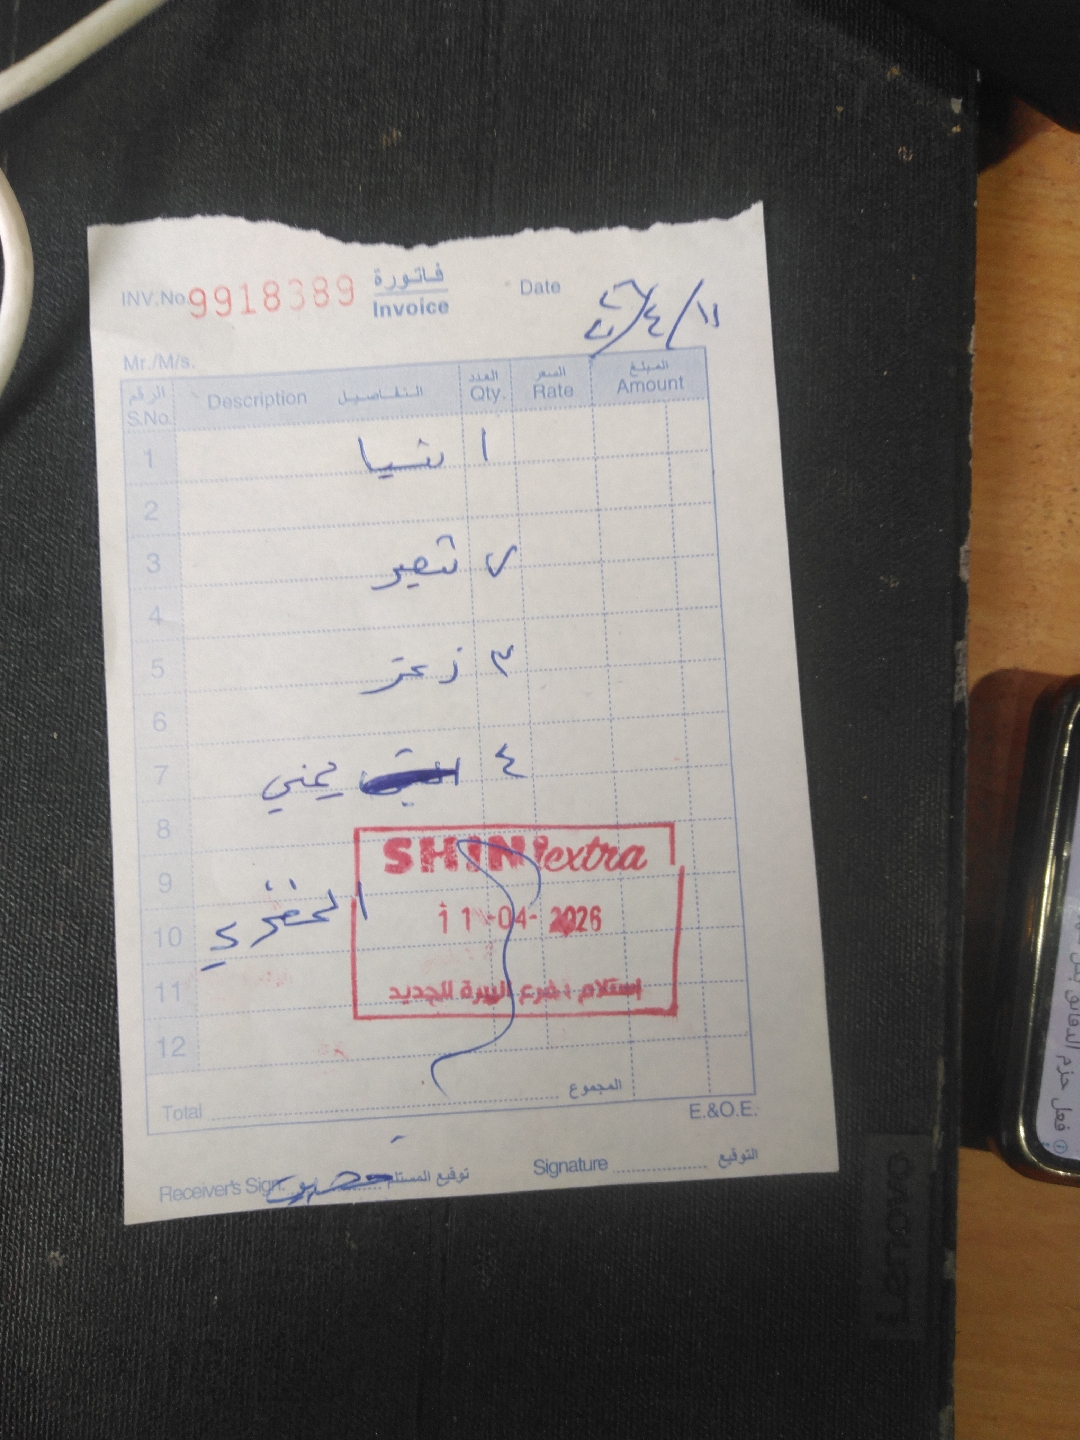 فاتورة
INV.No. 9918389 Invoice Date
٢٦/٤/١١
Mr./M/s.
الرقم التفاصيل العدد السعر المبلغ
S.No. Description Qty. Rate Amount
1 شيا ١
2
3 شعير ٧
4
5 زعتر ٣
6
7 يمني ٤
8
SHINI extra
9
11-04-2026
10
11 إستلام : فرع البيرة الجديد
12
Total المجموع
E.&O.E.
Receiver's Sign. توقيع المستلم Signature التوقيع
Lenovo